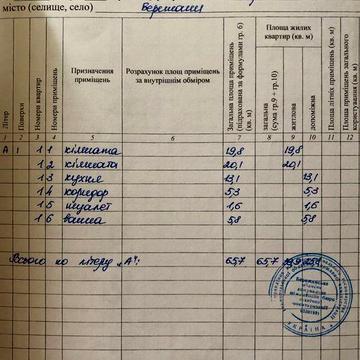 місто (селище, село)
Літер
Поверхи
Номери квартир
Номери приміщень
Призначення приміщень
Розрахунок площ приміщень за внутрішнім обміром
Загальна площа приміщень (підрахована за формулами гр. 6) (кв. м)
Площа жилих квартир (кв. м)
загальна (сума гр.9 + гр.10)
житлова
допоміжна
Площа літніх приміщень (кв. м)
Площа приміщень загального користування (кв. м)
1 2 3 4 5 6 7 8 9 10 11 12
А 1 1 1 кімната 19,8 19,8
1 2 кімната 20,1 20,1
1 3 кухня 13,1 13,1
1 4 коридор 5,3 5,3
1 5 туалет 1,6 1,6
1 6 ванна 5,8 5,8
Всього по літеру „А": 65,7 65,7 39,9 25,8
УКРАЇНА